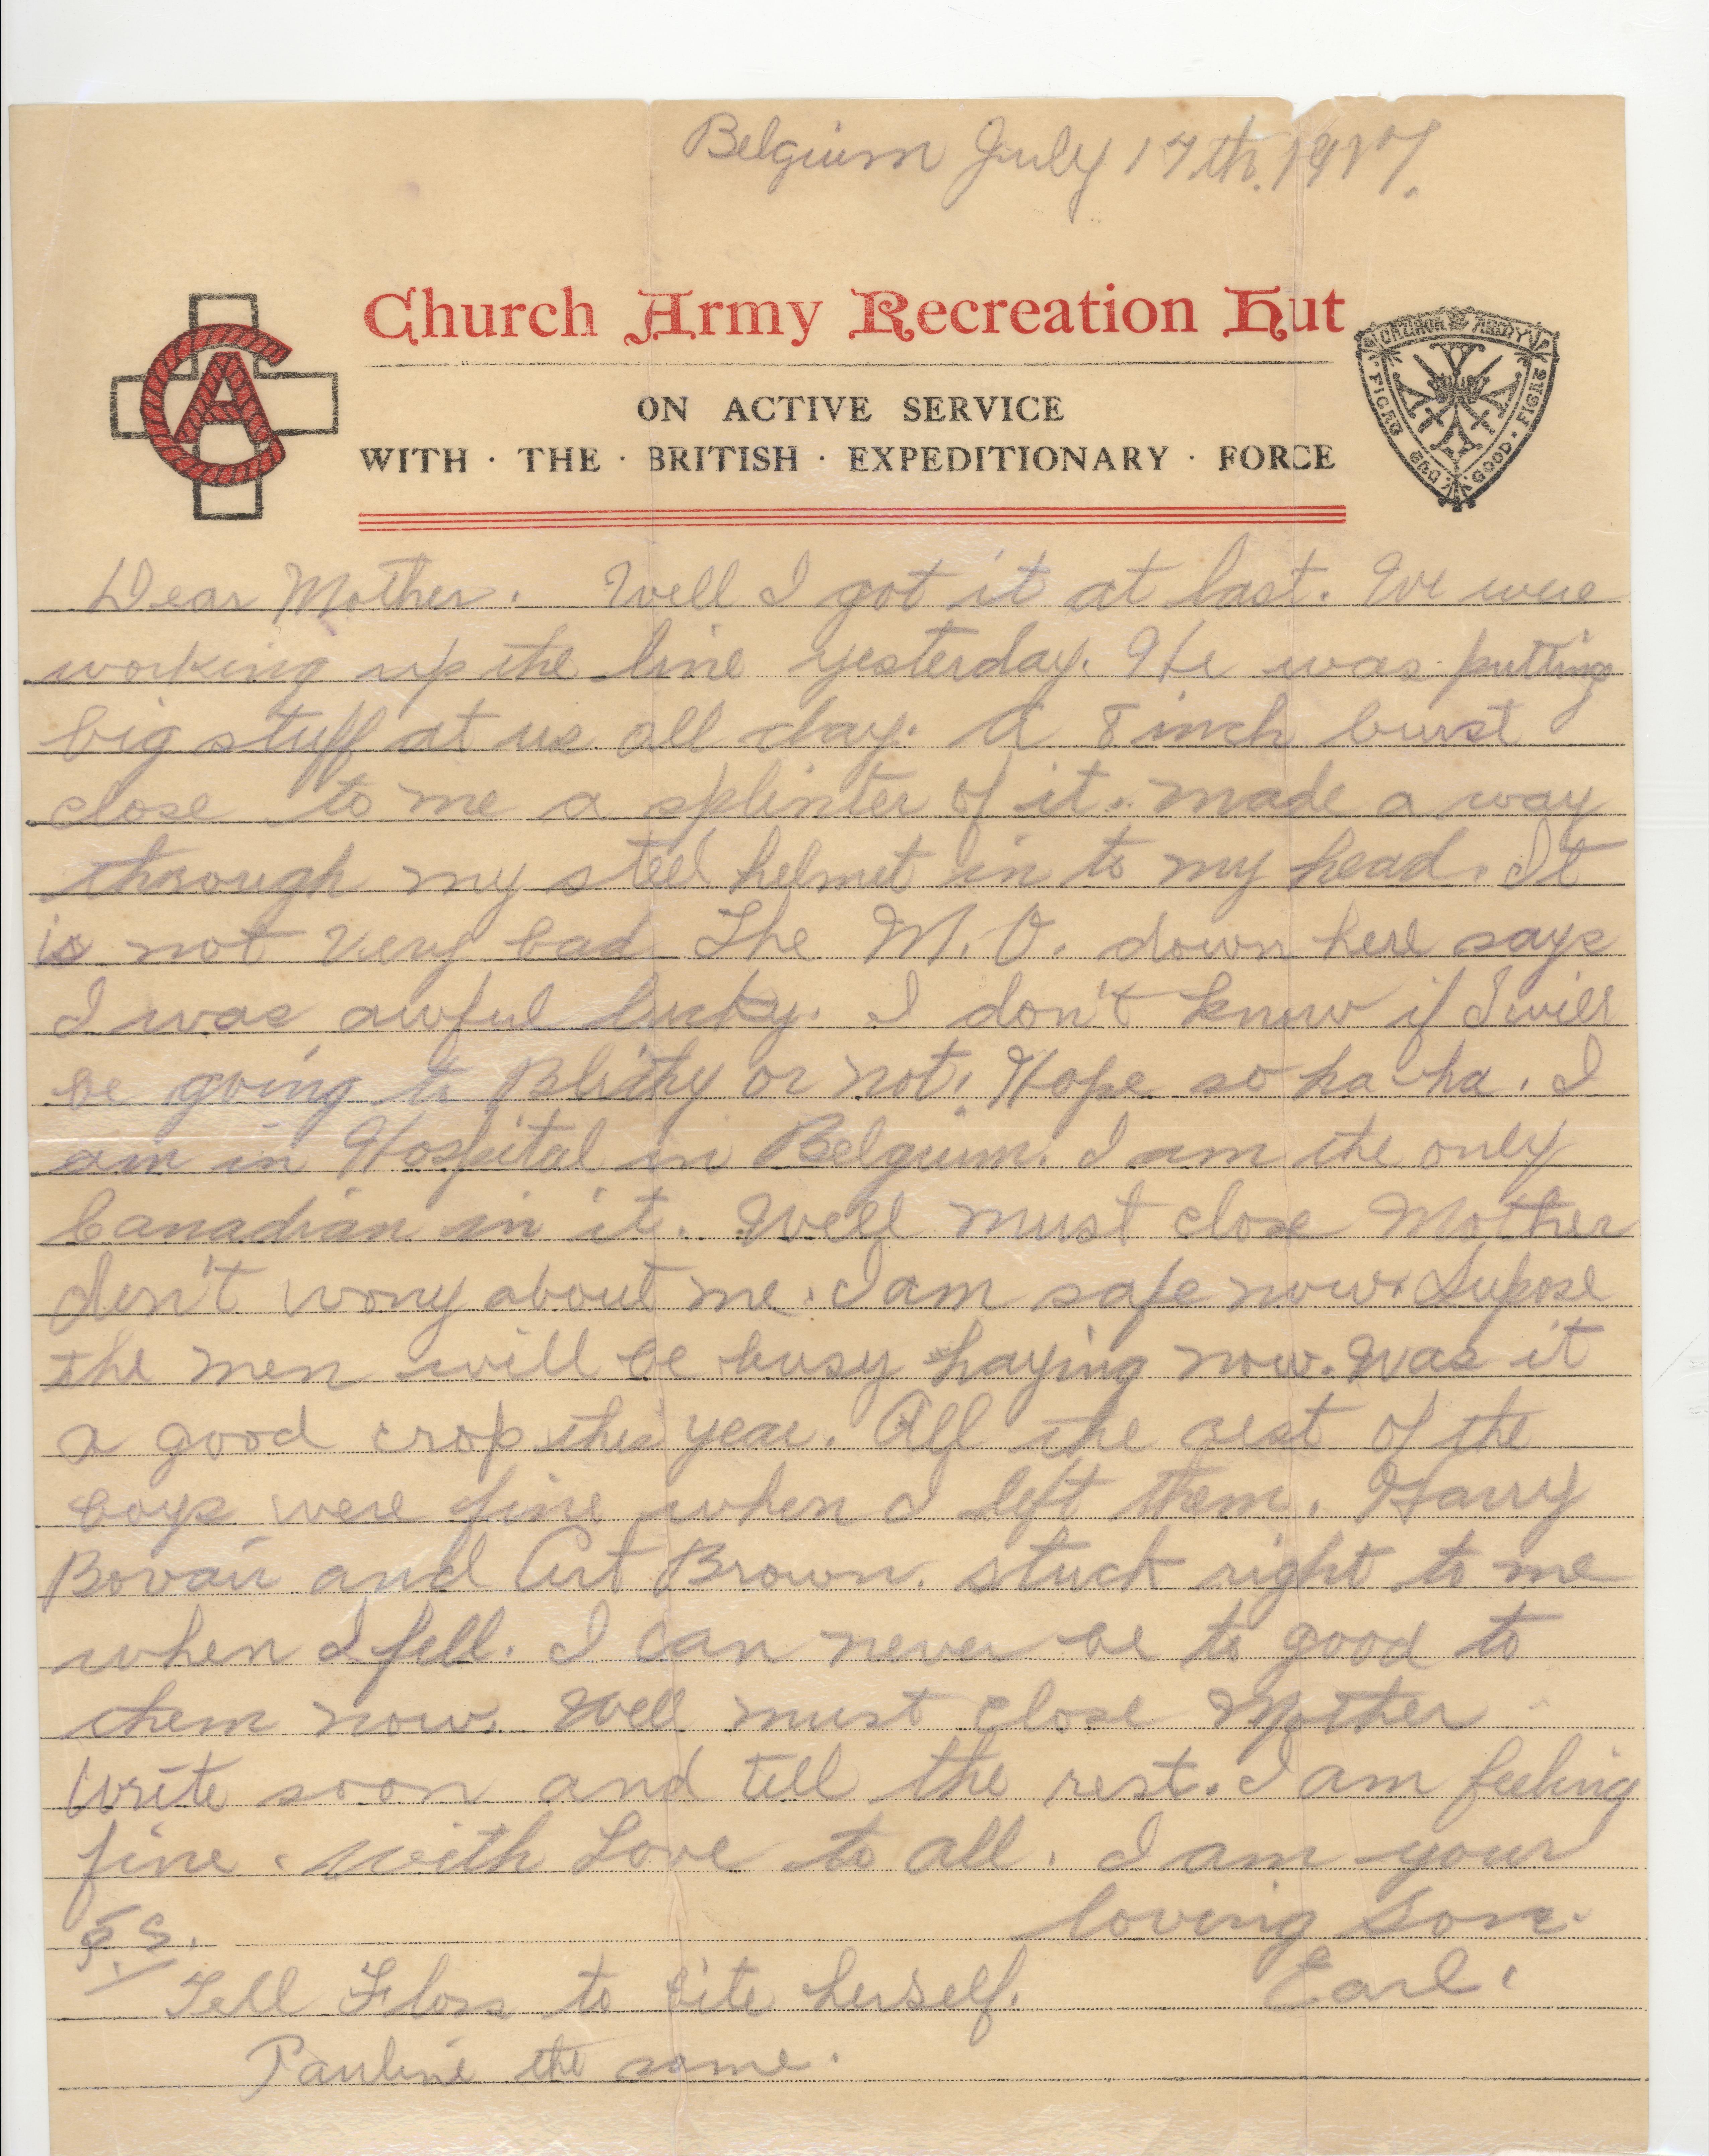 Belgium July 17th. 1917.
Church Army Recreation Hut
ON ACTIVE SERVICE
WITH · THE · BRITISH · EXPEDITIONARY · FORCE
CA
CHURCH ARMY
FIGHT THE GOOD · FIGHT
Dear Mother. Well I got it at last. We were
working up the line yesterday. He was putting
big stuff at us all day. A 8 inch burst
close to me a splinter of it. made a way
through my steel helmet in to my head. It
is not very bad The M. O. down here says
I was awful lucky. I don't know if I will
be going to Blithy or not. Hope so ha-ha. I
am in Hospital in Belgium. I am the only
Canadian in it. Well must close Mother
don't worry about me. I am safe now. Supose
the men will be busy haying now. Was it
a good crop this year. All the rest of the
boys were fine when I left them. Harry
Bovair and Art Brown. stuck right to me
when I fell. I can never be to good to
them now. Well must close Mother
write soon and tell the rest. I am feeling
fine. with Love to all. I am your
loving Son.
Earl.
P.S.
Tell Floss to bite herself.
Pauline the same.